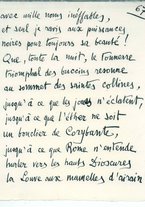 67
avec mille noms ineffables,
et seul je rois aux puissances
noires pour toujours sa beauté !
Que, toute la nuit, le tonnerre
triomphal des buccins resonne
au sommet des saintes collines,
jusqu'à ce que les joues n'éclatent,
jusqu'à ce que l'éther ne soit
un bouclier de Corybante,
jusqu'à ce que Rome n'entende
hurler vers les hauts Dioscures
la Louve aux mamelles d'airain